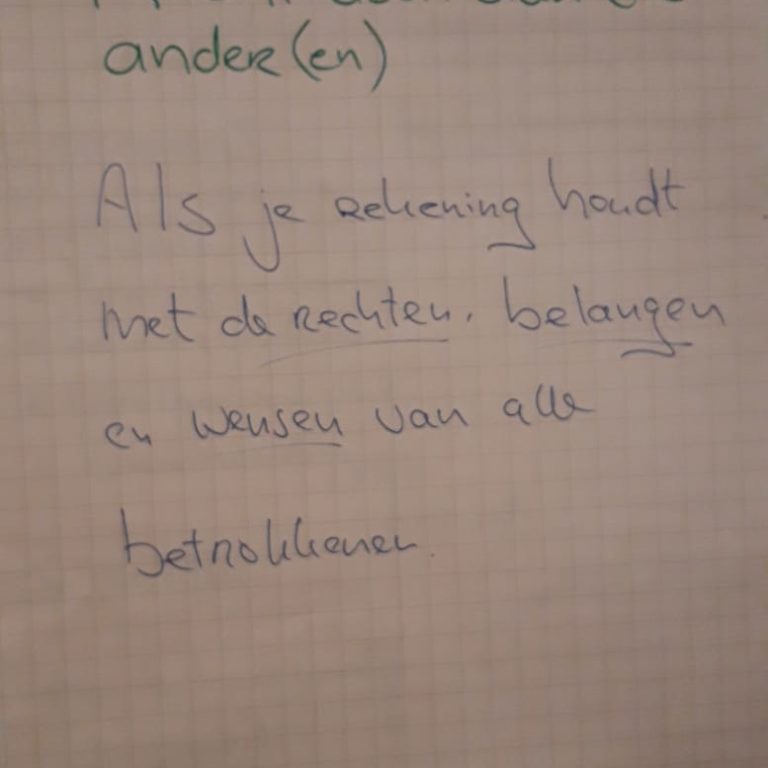 ander(en)
Als je rekening houdt
met de rechten, belangen
en wensen van alle
betrokkenen.